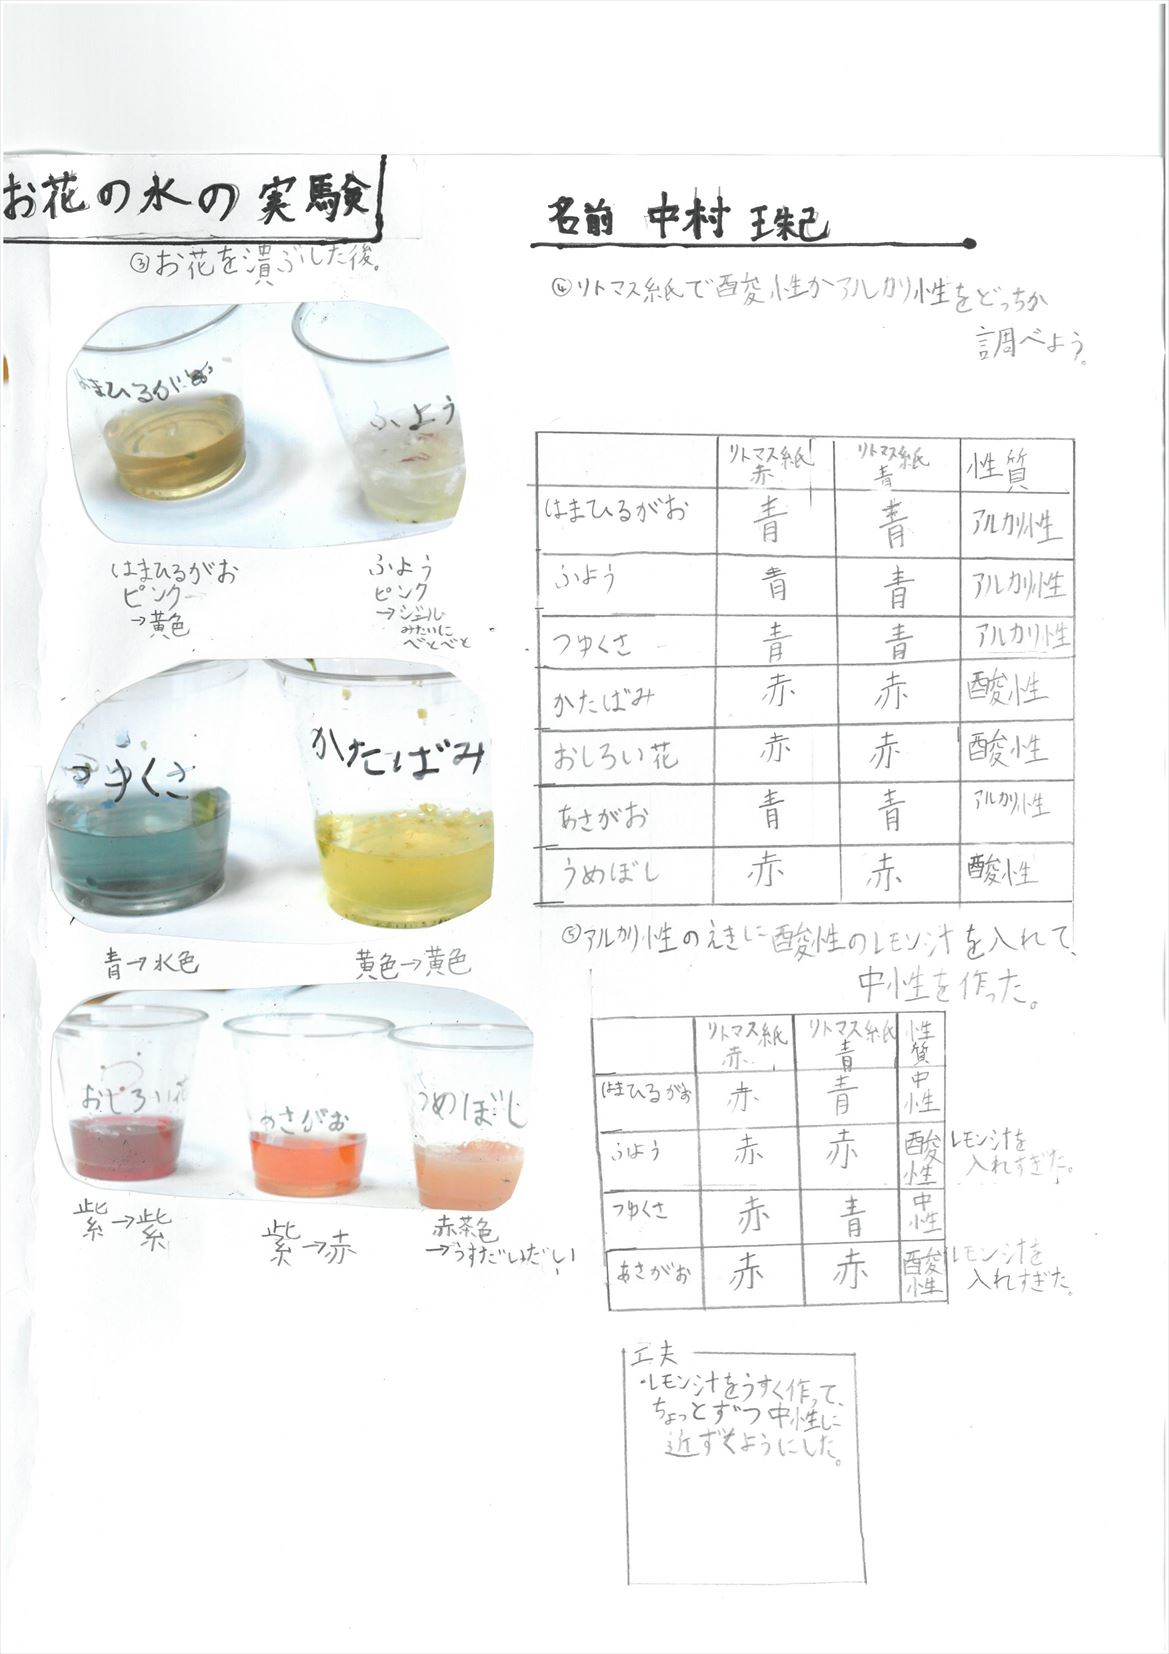 お花の水の実験
名前 中村 珠己
③お花を潰ぶした後。
はまひるがお
ふよう
はまひるがお
ピンク
→黄色
ふよう
ピンク
→ジェル
みたいに
べとべと
つゆくさ
かたばみ
青→水色
黄色→黄色
おしろい花
あさがお
うめぼし
紫→紫
紫→赤
赤茶色
→うすだいだい
④リトマス紙で酸性かアルカリ性をどっちか
調べよう。
リトマス紙赤 リトマス紙青 性質
はまひるがお 青 青 アルカリ性
ふよう 青 青 アルカリ性
つゆくさ 青 青 アルカリ性
かたばみ 赤 赤 酸性
おしろい花 赤 赤 酸性
あさがお 青 青 アルカリ性
うめぼし 赤 赤 酸性
⑤アルカリ性のえきに酸性のレモン汁を入れて、
中性を作った。
リトマス紙赤 リトマス紙青 性質
はまひるがお 赤 青 中性
ふよう 赤 赤 酸性 レモン汁を入れすぎた。
つゆくさ 赤 青 中性
あさがお 赤 赤 酸性 レモン汁を入れすぎた。
工夫
・レモン汁をうすく作って、
ちょっとずつ中性に
近ずくようにした。